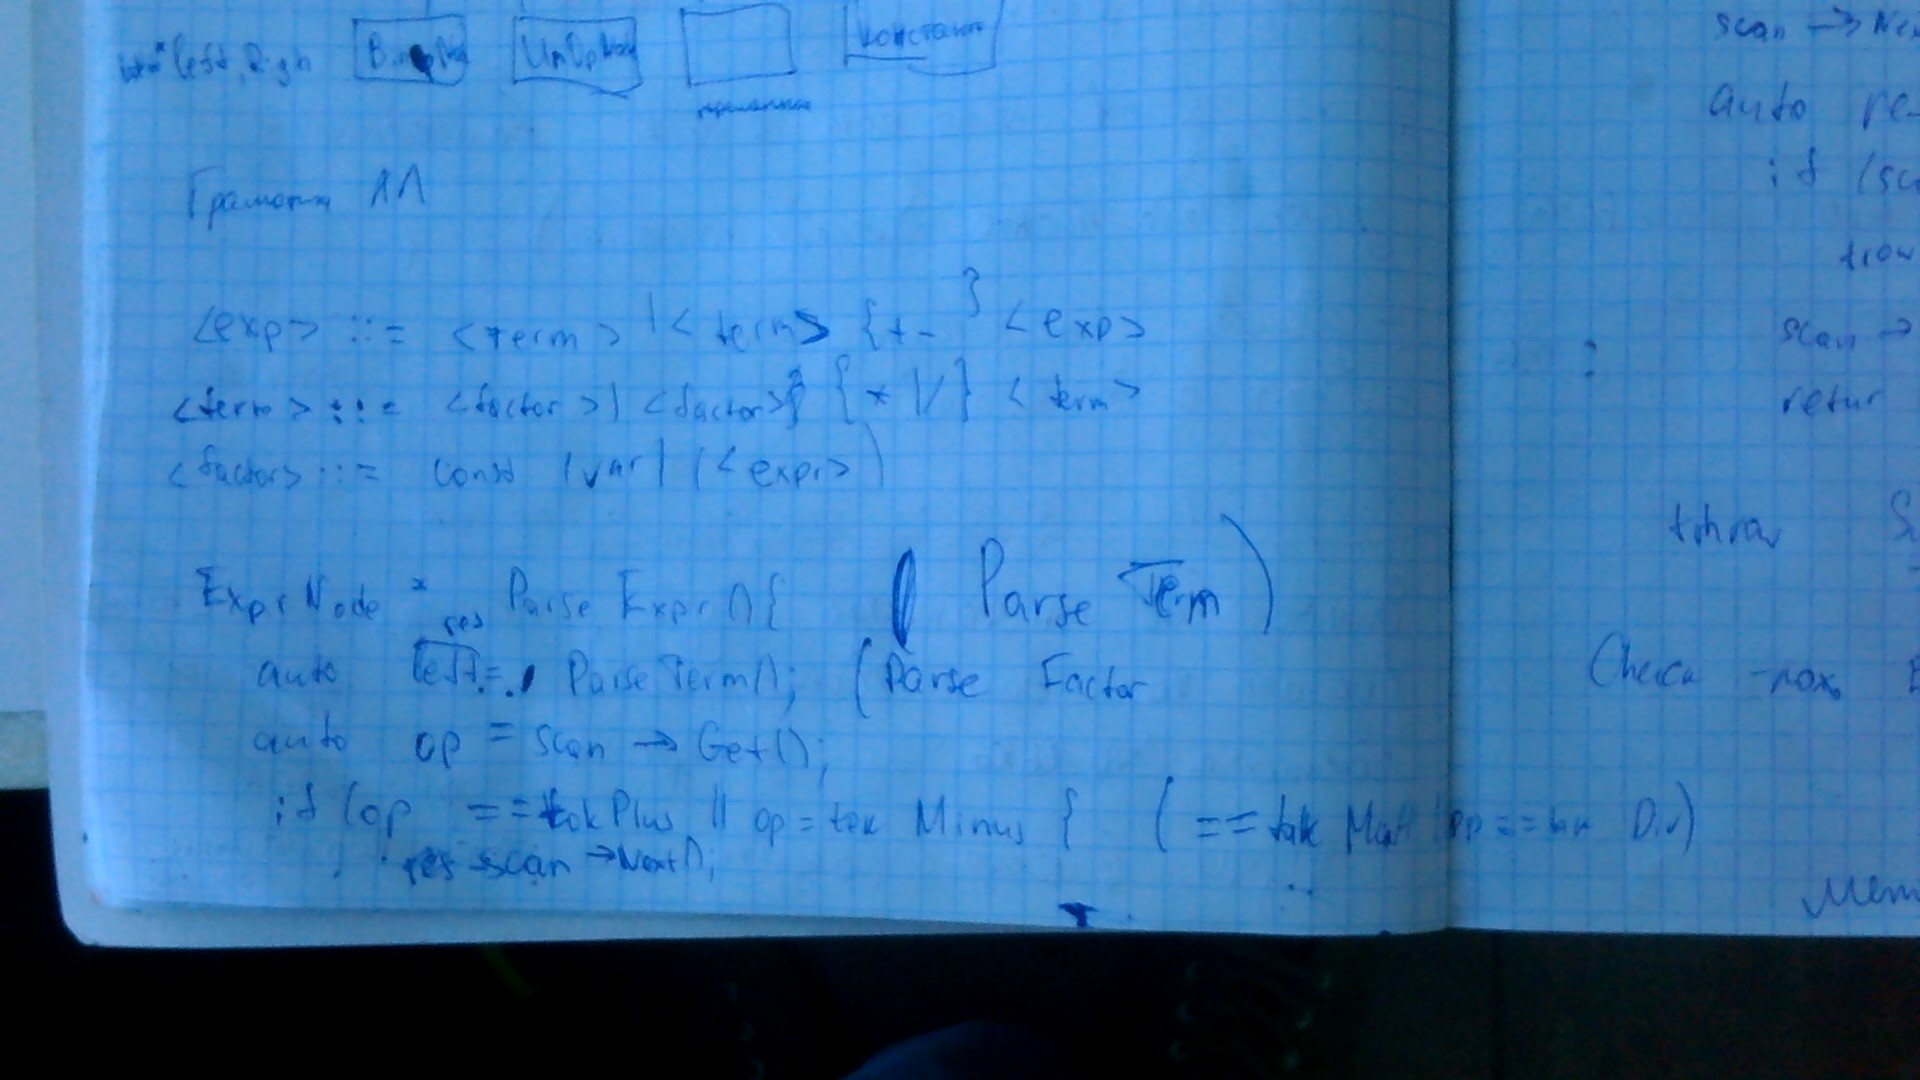 left, Righ UnOpNod константа
Грамматика
<exp> ::= <term> | <term> {+-} <exp>
<term> ::= <factor> | <factor> { * | / } <term>
<factor> ::= const | var | (<expr>)
ExprNode * Parse Expr () { ( Parse Term )
res
auto left = ParseTerm(); ( Parse Factor
auto op = scan → Get();
if (op == tokPlus || op = tok Minus { ( == tok op == Div)
res scan → Next();
scan →
auto re
if (sc
trow
scan →
retur
:
throw
Check